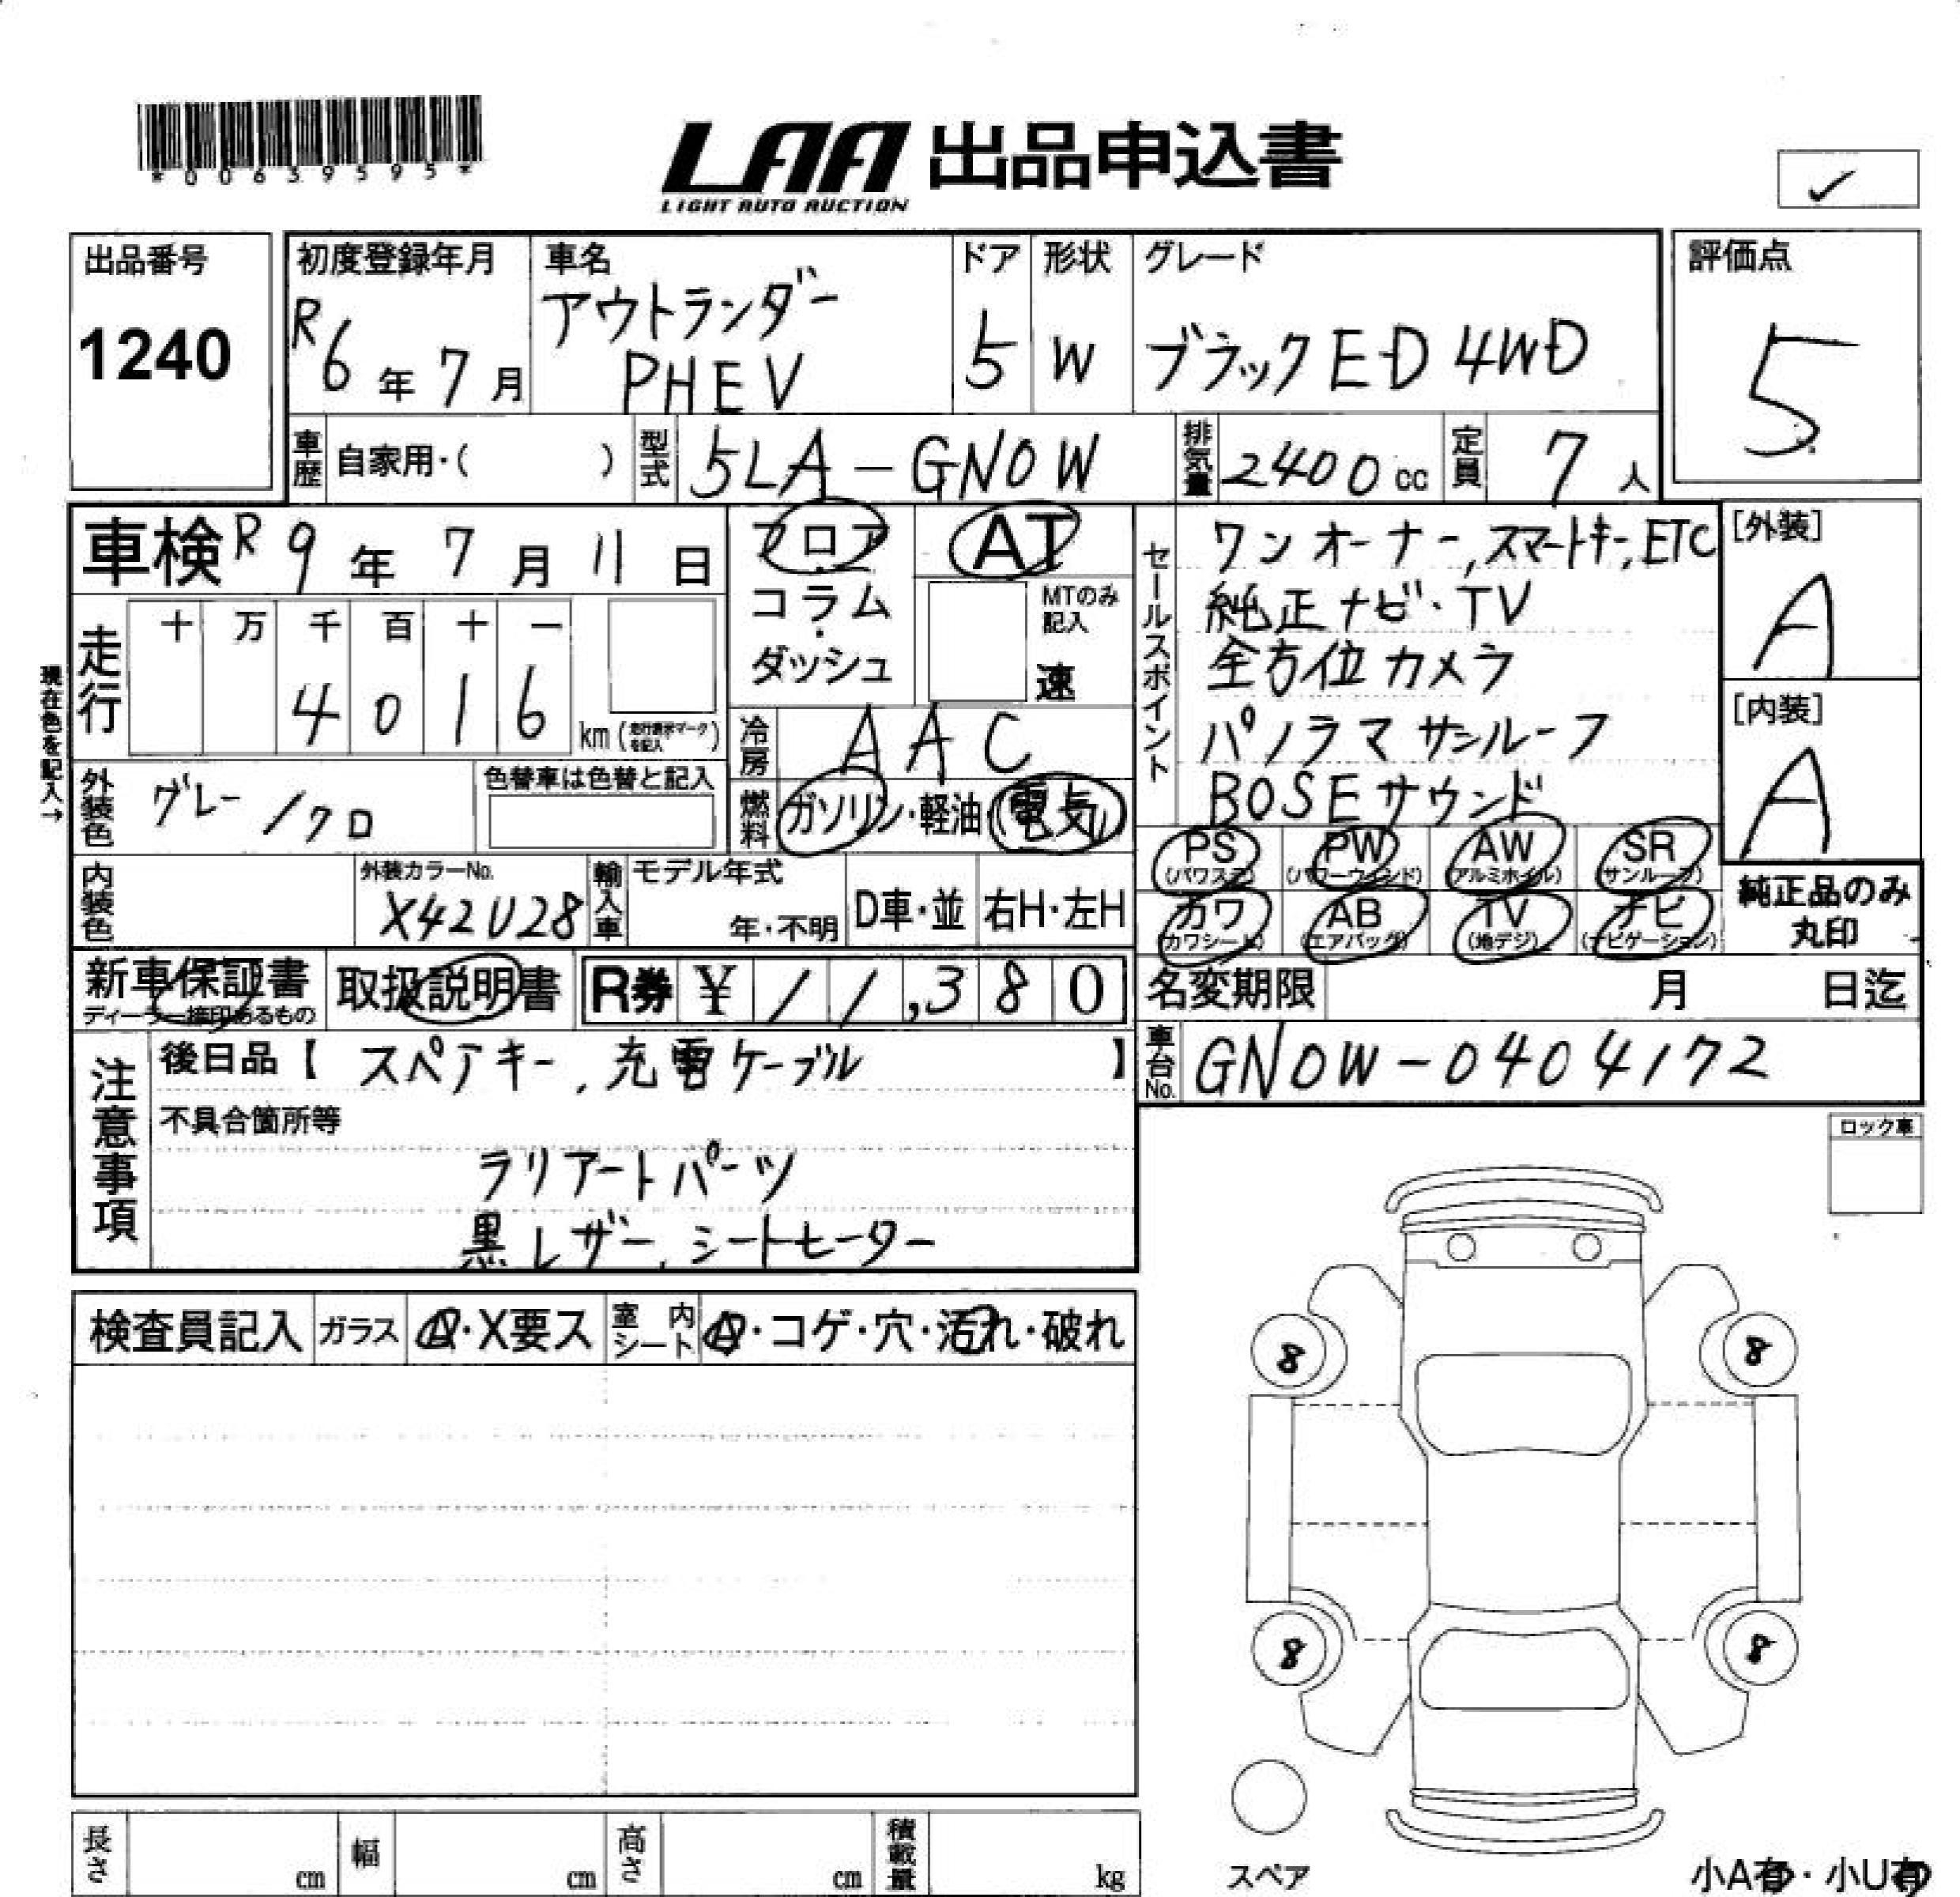 *00639595*
LAA 出品申込書
LIGHT AUTO AUCTION
✓
出品番号
1240
初度登録年月
R6年7月
車名
アウトランダー
PHEV
ドア
5
形状
W
グレード
ブラックE-D 4WD
評価点
5
車歴 自家用・( )
型式 5LA-GN0W
排気量 2400cc
定員 7人
車検 R9年7月11日
フロア
コラム
・
ダッシュ
AT
MTのみ
記入
速
セールスポイント
ワンオーナー,スマートキー,ETC
純正ナビ・TV
全方位カメラ
パノラマサンルーフ
BOSEサウンド
[外装]
A
[内装]
A
現在色を記入→
走行
十 万 千 百 十 一
4 0 1 6 km
冷房 AAC
外装色 グレー/クロ
色替車は色替と記入
燃料 ガソリン・軽油・電気
内装色
外装カラーNo.
X42U28
輸入車
モデル年式
年・不明
D車・並
右H・左H
PS
(パワステ)
PW
(パワーウィンド)
AW
(アルミホイル)
SR
(サンルーフ)
カワ
(カワシート)
AB
(エアバッグ)
TV
(地デジ)
ナビ
(ナビゲーション)
純正品のみ
丸印
新車保証書
ディーラー捺印あるもの
取扱説明書
R券 ¥11,380
名変期限 月 日迄
車台No. GN0W-0404172
注意事項
後日品【 スペアキー,充電ケーブル 】
不具合箇所等
ラリアートパーツ
黒レザー,シートヒーター
ロック車
検査員記入 ガラス A・X要ス 室内シート A・コゲ・穴・汚れ・破れ
8
8
8
8
スペア
長さ cm
幅 cm
高さ cm
積載量 kg
小A有・小U有